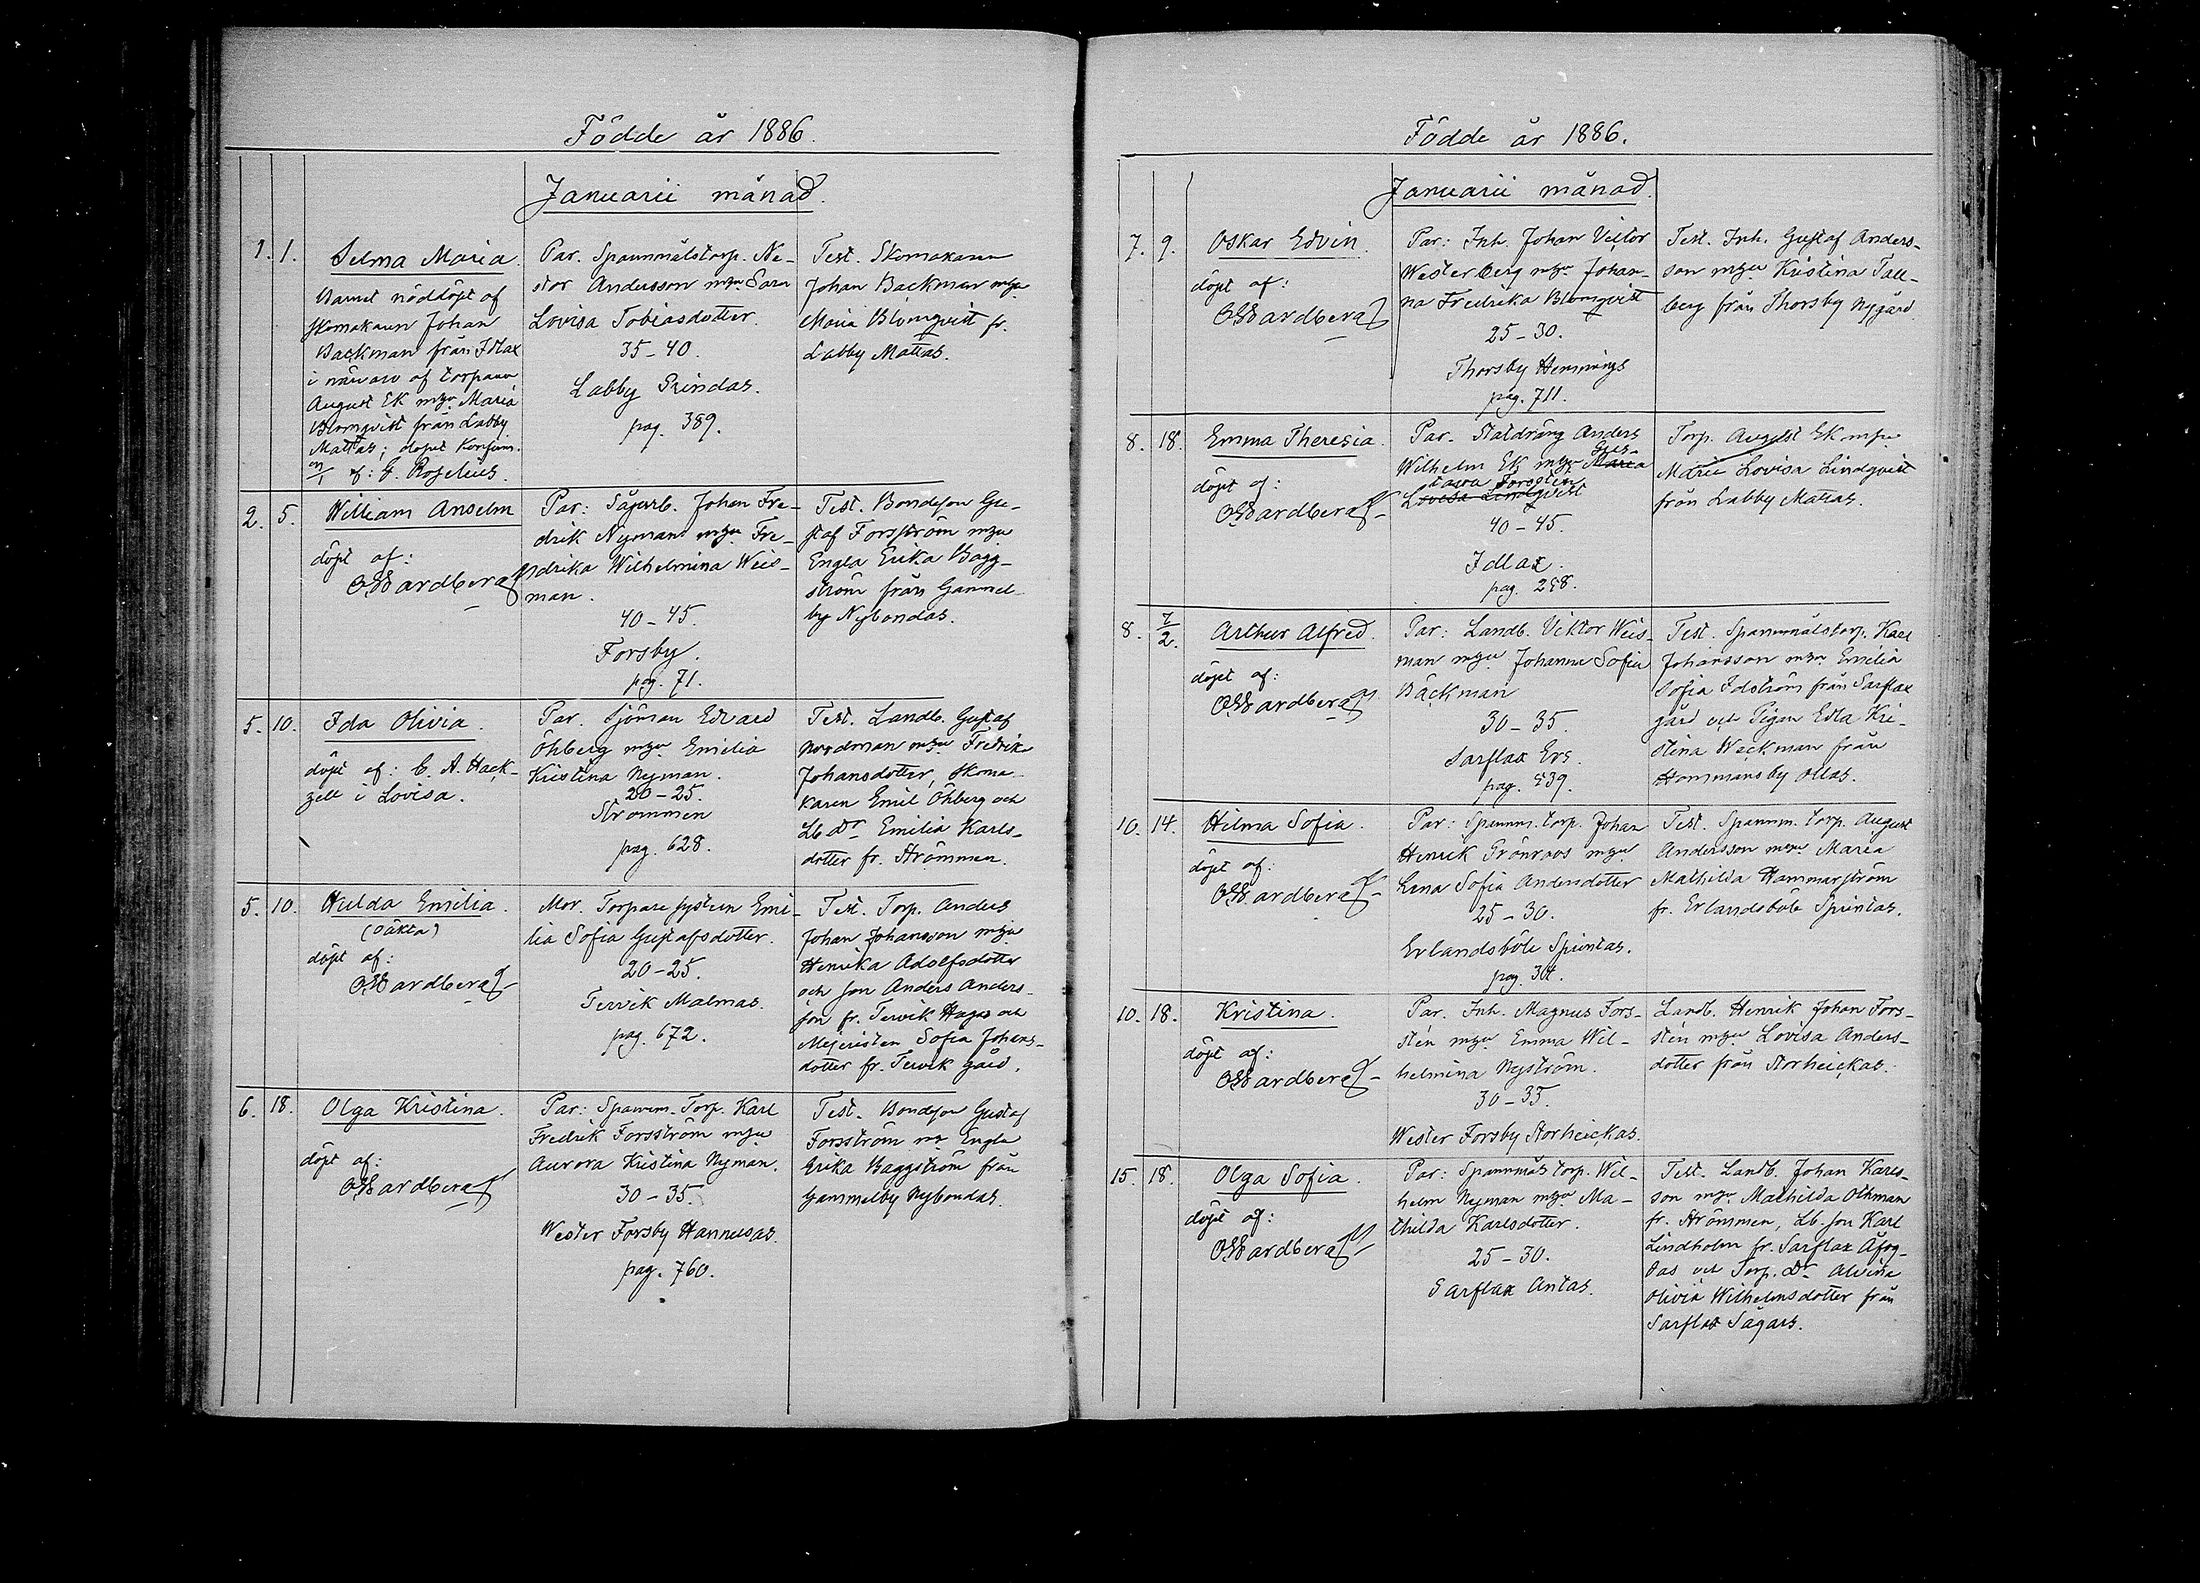 Födde år 1886.
Januarii månad.
1. 1. Selma Maria.
Barnet nöddöpt af
skomakaren Johan
Backman från Idlax
i närvaro af torparen
August Ek m hu Maria
Blomqvist från Labby
Mattas; dopet konfirm.
af: G. Roselius.
Par. Spannmålstorp. Ne-
stor Andersson m hu Sara
Lovisa Tobiasdotter.
35-40.
Labby Prindas.
pag. 389.
Test. Skomakaren
Johan Backman m hu
Maria Blomqvist fr.
Labby Mattas.
2. 5. William Anselm
döpt af:
OWardberg
Par: Sågarb. Johan Fre-
drik Nyman m hu Fre-
drika Wilhelmina Weis-
man.
40-45.
Forsby.
pag. 71.
Test. Bondeson Gu-
staf Forsström m hu
Engla Erika Bagg-
ström från Gammel-
by Nybondas.
5. 10. Ida Olivia.
döpt af: C. A. Hack-
zell i Lovisa.
Par. Sjöman Edvard
Öhberg m hu Emilia
Kristina Nyman.
20-25.
Strömmen
pag. 628.
Test. Landb. Gustaf
Nordman m hu Fredrika
Johansdotter, skoma-
karen Emil Öhberg och
Lb dr Emilia Karls-
dotter fr. Strömmen.
5. 10. Hulda Emilia.
(oäkta)
döpt af:
OWardberg
Mor. Torpare systern Emi-
lia Sofia Gustafsdotter.
20-25.
Tervik Malmas.
pag. 672.
Test. Torp. Anders
Johan Johansson m hu
Henrika Adolfsdotter
och son Anders Anders-
son fr. Tervik Hagas och
Mejeristen Sofia Johans-
dotter fr. Tervik gård.
6. 18. Olga Kristina.
döpt af:
OWardberg
Par: Spannm. Torp. Karl
Fredrik Forsström m hu
Aurora Kristina Nyman.
30-35.
Wester Forsby Hannusas.
pag. 760.
Test. Bondeson Gustaf
Forsström m Engla
Erika Baggström från
Gammelby Nybondas.
Födde år 1886.
Januarii månad.
7. 9. Oskar Edvin.
döpt af:
OWardberg
Par: Inh. Johan Victor
Westerberg m hu Johan-
na Fredrika Blomqvist
25-30.
Thorsby Hemmings
pag. 711.
Test. Inh. Gustaf Anders-
son m hu Kristina Tall-
berg från Thorsby Nygård
8. 18. Emma Theresia.
döpt af:
OWardberg
Par. Statdräng Anders
Gus-
Wilhelm Ek m hu Maria
tava Forsstén
Lovisa Lindqvist
40-45.
Idlax.
pag. 258.
Torp. August Ek m hu
Maria Lovisa Lindqvist
från Labby Mattas.
8. 7/2. Arthur Alfred.
döpt af:
OWardberg
Par: Landb. Viktor Weis-
man m hu Johanna Sofia
Bäckman
30-35.
Sarflax Ers.
pag. 539.
Test. Spannmålstorp. Karl
Johansson m hu Emilia
Sofia Idström från Sarflax
gård och Pigan Edla Kri-
stina Wäckman från
Hommansby Ollas.
10. 14. Hilma Sofia.
döpt af:
OWardberg
Par: Spannm. torp. Johan
Henrik Grönroos m hu
Lena Sofia Andersdotter
25-30.
Erlandsböle Spiutas.
pag. 34.
Test. Spannm. torp. August
Andersson m hu Maria
Mathilda Hammarström
fr. Erlandsböle Spiutas.
10. 18. Kristina.
döpt af:
OWardberg
Par. Inh. Magnus Fors-
stén m hu Emma Wil-
helmina Nyström.
30-35.
Wester Forsby Storheickas.
Landb. Henrik Johan Fors-
stén m hu Lovisa Anders-
dotter från Storheickas.
15. 18. Olga Sofia.
döpt af:
OWardberg
Par: Spannmålstorp. Wil-
helm Nyman m hu Ma-
thilda Karlsdotter.
25-30.
Sarflax Antas.
Test. Landb. Johan Karls-
son m hu Mathilda Öhman
fr. Strömmen, Lb. son Karl
Lindholm fr. Sarflax Åfog-
das och Torp. Dr Alvina
Olivia Wilhelmsdotter från
Sarflax Sågars.